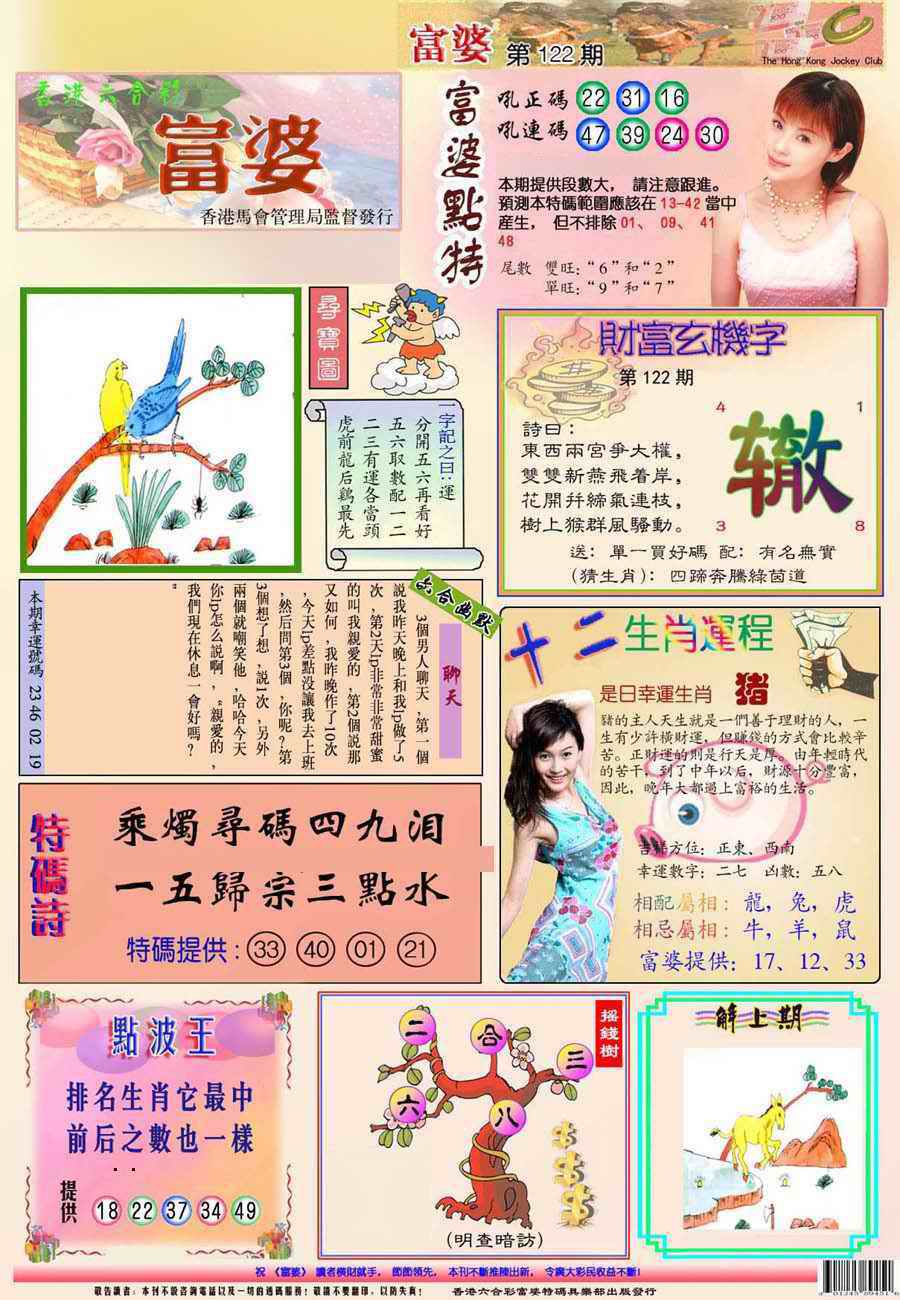 富婆 第122期
The Hong Kong Jockey Club
香港六合彩
富婆
香港馬會管理局監督發行
富婆點特
吼正碼 22 31 16
吼連碼 47 39 24 30
本期提供段數大， 請注意跟進。
預測本特碼範圍應該在 13-42 當中
産生， 但不排除 01、 09、 41
48
尾數 雙旺:“6”和“2”
單旺:“9”和“7”
尋寶圖
一字記之曰:運
分開五六再看好
五六取數配一二
二三有運各當頭
虎前龍后鷄最先
財富玄機字
第122期
4 1
轍
3 8
詩曰:
東西兩宮爭大權，
雙雙新燕飛着岸，
花開幷締氣連枝，
樹上猴群風騷動。
送: 單一買好碼 配: 有名無實
(猜生肖): 四蹄奔騰綠茵道
六合幽默
聊天
3個男人聊天,第一個
説我昨天晚上和我lp做了5
次,第2天lp非常非常甜蜜
的叫我親愛的,第2個説那
又如何,我昨晚作了10次
,今天lp差點没讓我去上班
,然后問第3個,你呢?第
3個想了想,説1次,另外
兩個就嘲笑他,哈哈今天
你lp怎么説啊,“親愛的,
我們現在休息一會好嗎?
”
本期幸運號碼 23 46 02 19
十二生肖運程
是日幸運生肖 猪
豬的主人天生就是一們善于理財的人，一
生有少許橫財運，但賺錢的方式會比較辛
苦。正財運的則是行天是厚。由年輕時代
的苦干，到了中年以后，財源十分豐富，
因此，晚年大都過上富裕的生活。
吉祥方位: 正東、西南
幸運數字: 二七 凶數: 五八
相配屬相: 龍，兔，虎
相忌屬相: 牛，羊，鼠
富婆提供: 17、12、33
特碼詩
乘燭尋碼四九泪
一五歸宗三點水
特碼提供: 33 40 01 21
點波王
排名生肖它最中
前后之數也一樣
提供 18 22 37 34 49
搖錢樹
二 合 三
六 八
(明查暗訪)
解上期
祝 《富婆》 讀者橫財就手， 節節領先， 本刊不斷推陳出新， 令廣大彩民收益不斷!
敬告讀者: 本刊不設咨詢電話以及一切的透碼服務! 敬請不要翻印，以防失真! 香港六合彩富婆特碼具樂部出版發行